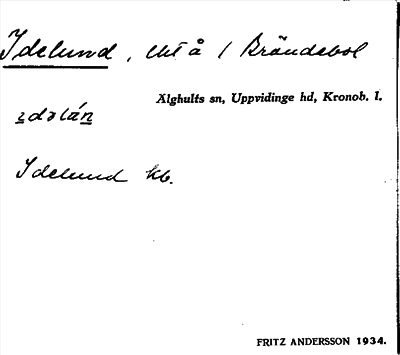 Idelund, lht å / Brändebol
Älghults sn, Uppvidinge hd, Kronob. l.
Idelund kb.
FRITZ ANDERSSON 1934.